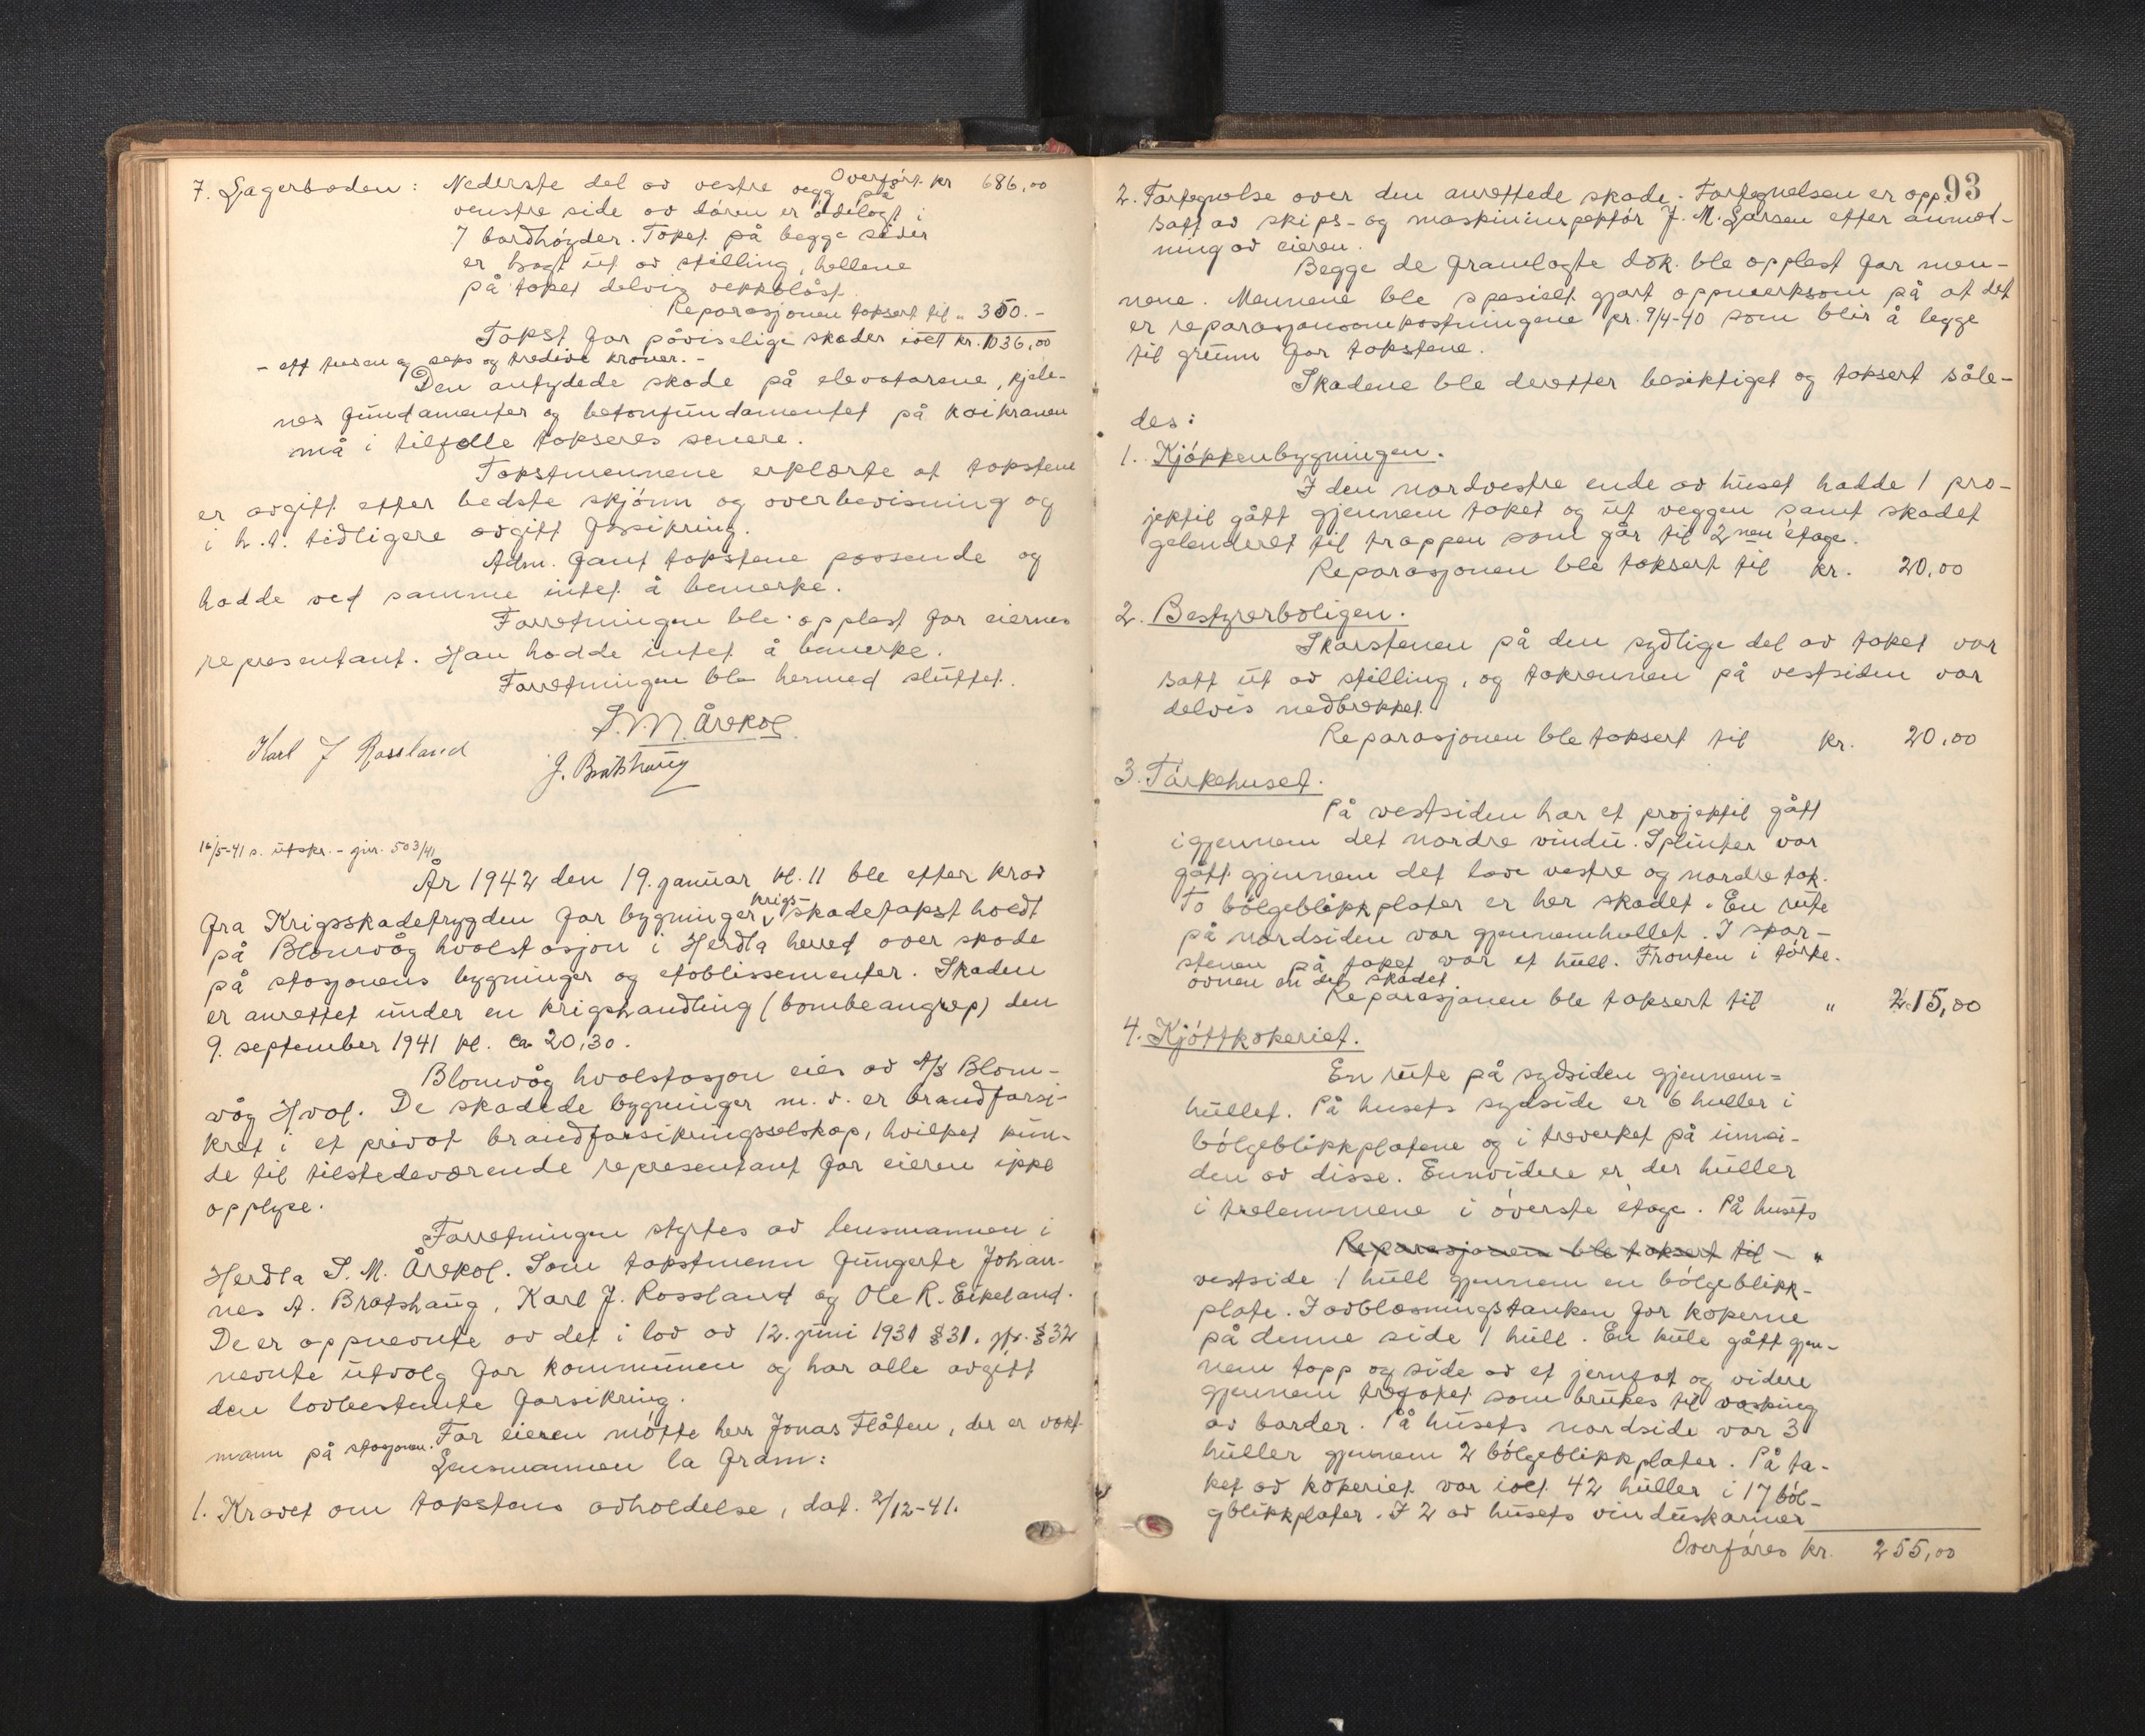 Overført kr 686,00
7. Lagerboden: Nederste del av vestre vegg på
venstre side av dören er ödelagt i
7 bordhöyder. Taket på begge sider
er bragt ut av stilling, hellene
på taket delvis vekkblåst.
Reparasjonen taksert til „ 350.-
Takst for påviselige skader ialt kr. 1036,00
- ett tusen og seks og tredive kroner. -
Den antydede skade på elevatorene, kjele-
nes fundamenter og betonfundamentet på kaikranen
må i tilfelle takseres senere.
Takstmennene erklærte at takstene
er avgitt etter bedste skjönn og overbevisning og
i h.t. tidligere avgitt forsikring.
Adm. fant takstene passende og
hadde ved samme intet å bemerke.
Forretningen ble opplest for eiernes
representant. Han hadde intet å bemerke.
Forretningen ble hermed sluttet.
S. M. Årekol
Karl J Rossland
J. Bratshaug
16/5-41 s. utskr. - jnr. 503/41
År 1942 den 19. januar kl. 11 ble etter krav
fra Krigsskadetrygden for bygninger krigs-skadetakst holdt
på Blomvåg hvalstasjon i Herdla herred over skade
på stasjonens bygninger og etablissementer. Skaden
er anrettet under en krigshandling (bombeangrep) den
9. september 1941 kl. ca 20,30.
Blomvåg hvalstasjon eies av A/S Blom-
våg Hval. De skadede bygninger m. v. er brandforsi-
kret i et privat brandforsikringsselskap, hvilket kun-
de til tilstedeværende representant for eieren ikke
opplyse.
Forretningen styrtes av lensmannen i
Herdla S. M. Årekol. Som takstmenn fungerte Johan-
nes A. Bratshaug, Karl J. Rossland og Ole R. Eikeland.
De er oppnevnte av det i lov av 12. juni 1931 § 31. jfr. § 32
nevnte utvalg for kommunen og har alle avgitt
den lovbestemte forsikring.
For eieren mötte herr Jonas Flåten, der er vakt-
mann på stasjonen.
Lensmannen la fram:
1. Kravet om takstens avholdelse, dat. 2/12-41.
93
2. Fortegnelse over den anrettede skade. Fortegnelsen er opp-
satt av skips- og maskininspektör J. M. Larsen etter anmod-
ning av eieren.
Begge de framlagte dok. ble opplest for men-
nene. Mennene ble spesielt gjort oppmerksom på at det
er reparasjonsomkostningene pr. 9/4-40 som blir å legge
til grunn for takstene.
Skadene ble deretter besiktiget og taksert såle-
des:
1. Kjökkenbygningen.
I den nordvestre ende av huset hadde 1 pro-
jektil gått gjennem taket og ut veggen samt skadet
gelenderet til trappen som går til 2nen etage.
Reparasjonen ble taksert til kr. 20,00
2. Bestyrerboligen.
Skorstenen på den sydlige del av taket var
satt ut av stilling, og takrennen på vestsiden var
delvis nedbrekket.
Reparasjonen ble taksert til kr. 20,00
3. Törkehuset.
På vestsiden har et projektil gått
igjennem det nordre vindu. Splinter var
gått gjennem det lave vestre og nordre tak.
To bölgeblikkplater er her skadet. En rute
på nordsiden var gjennemhullet. I skor-
stenen på taket var et hull. Fronten i törke-
ovnen en del skadet.
Reparasjonen ble taksert til „ 215,00
4. Kjöttkokeriet.
En rute på sydsiden gjennem=
hullet. På husets sydside er 6 huller i
bölgeblikkplatene og i treverket på innsi-
den av disse. Ennvidere er der huller
i trelemmene i överste etage. På husets
Reparasjonen ble taksert til - „
vestside 1 hull gjennem en bölgeblikk-
plate. I avblæsningstanken for kokerne
på denne side 1 hull. En kule gått gjen-
nem topp og side av et jernfat og videre
gjennem trefatet som brukes til vasking
av barder. På husets nordside var 3
huller gjennem 2 bölgeblikkplater. På ta-
ket av kokeriet var ialt 42 huller i 17 böl-
geblikkplater. I 2 av husets vinduskarmer
Overföres kr. 255,00